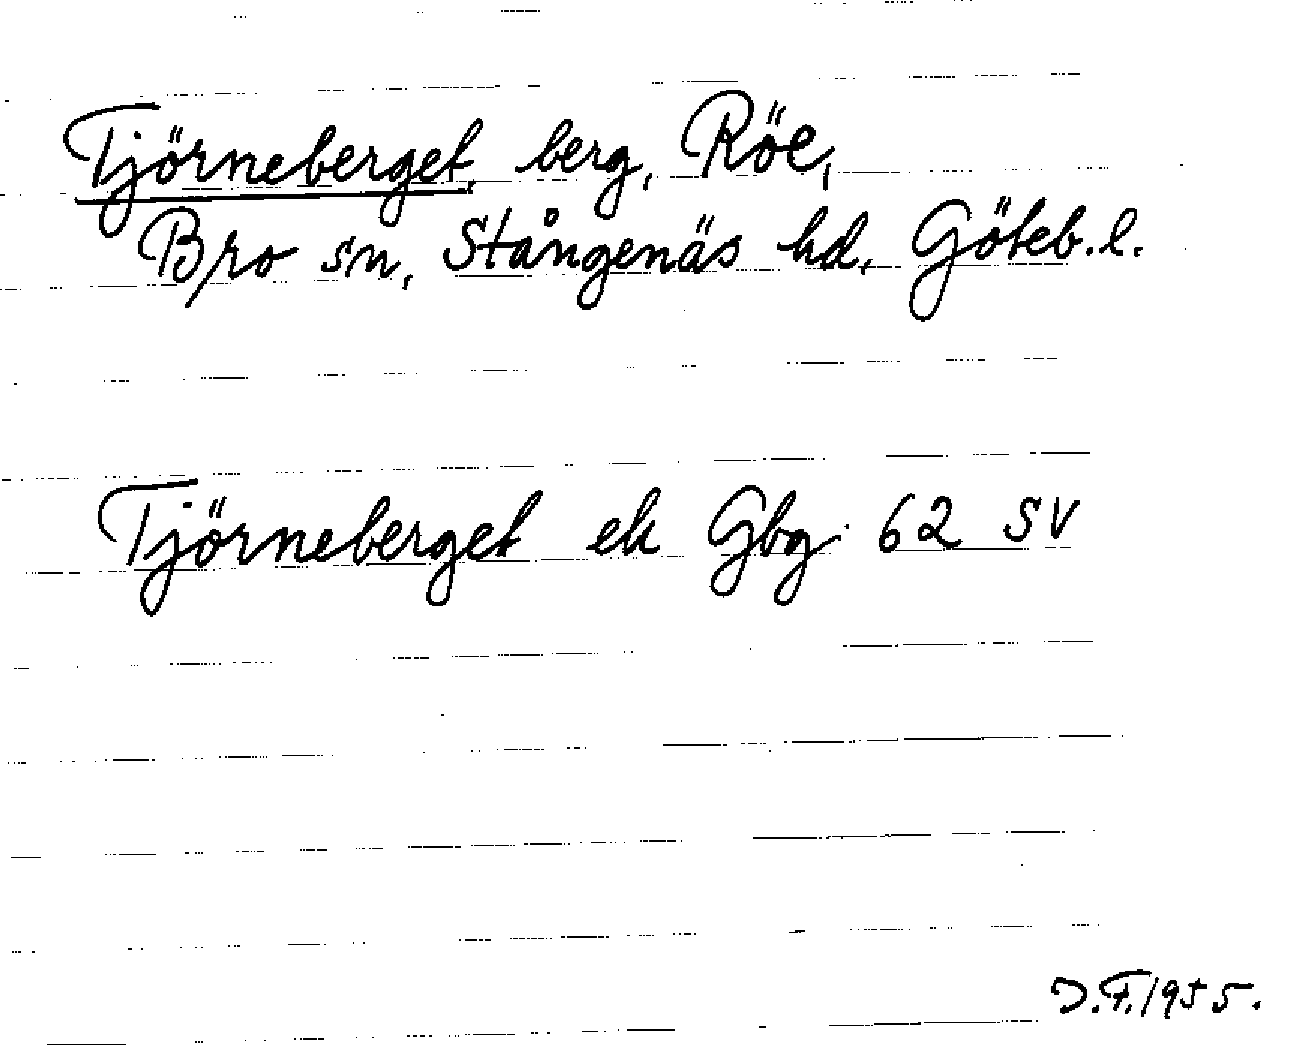 Tjörneberget, berg, Röe,
Bro sn, Stångenäs hd, Göteb. l.
Tjörneberget ek Gbg 62 SV
D.F. 1955.